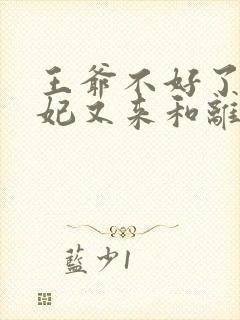 王爺不好了
妃又来和離
藍少1